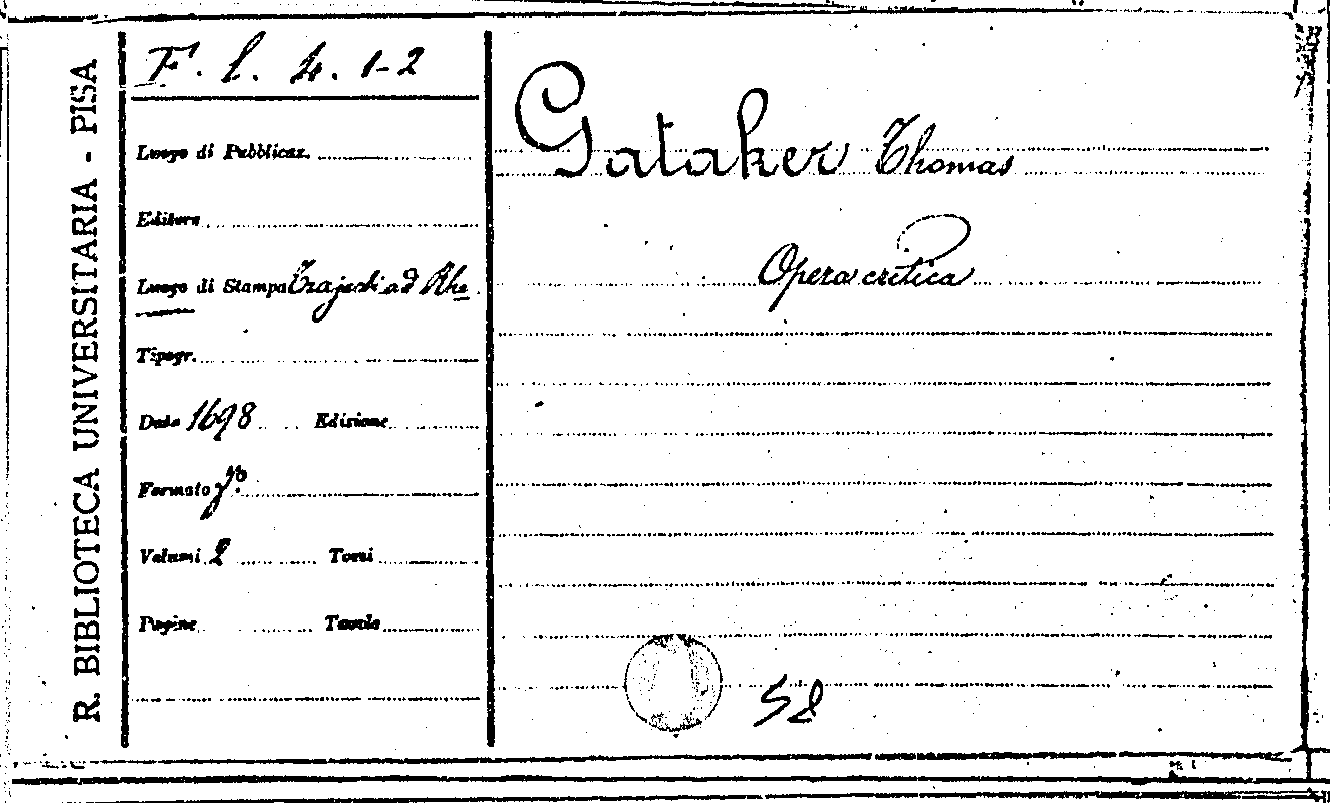 R. BIBLIOTECA UNIVERSITARIA - PISA
F. l. 4. 1-2
Luogo di Pubblicaz.
Editore
Luogo di Stampa Trajecti ad Rhe
Tipogr.
Data 1698 Edizione
Formato fº.
Volumi 2 Tomi
Pagine Tavole
Gataker Thomas
Opera critica
58